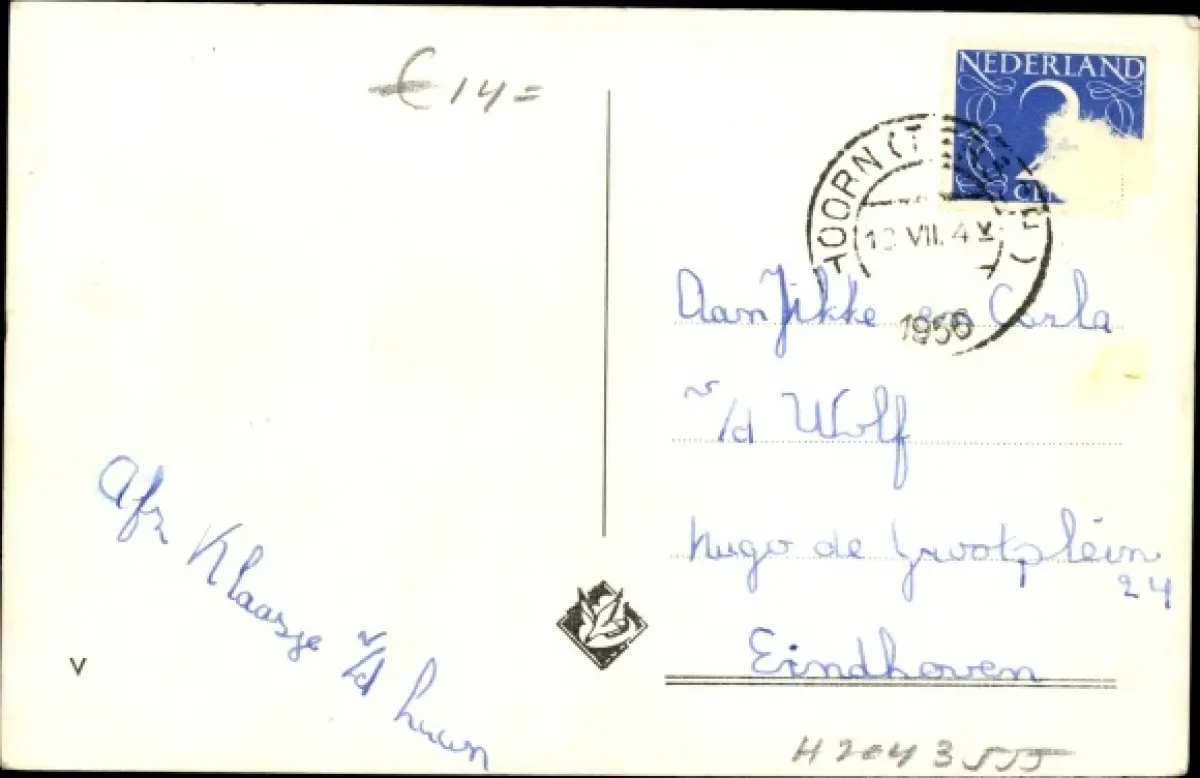 € 14 =
NEDERLAND
HOORN (T
VII. 4
1956
Aan Jikke en Carla
v/d Wolf
Hugo de Grootplein
24
Eindhoven
Afz Klaasje
v/d
V
H2043555